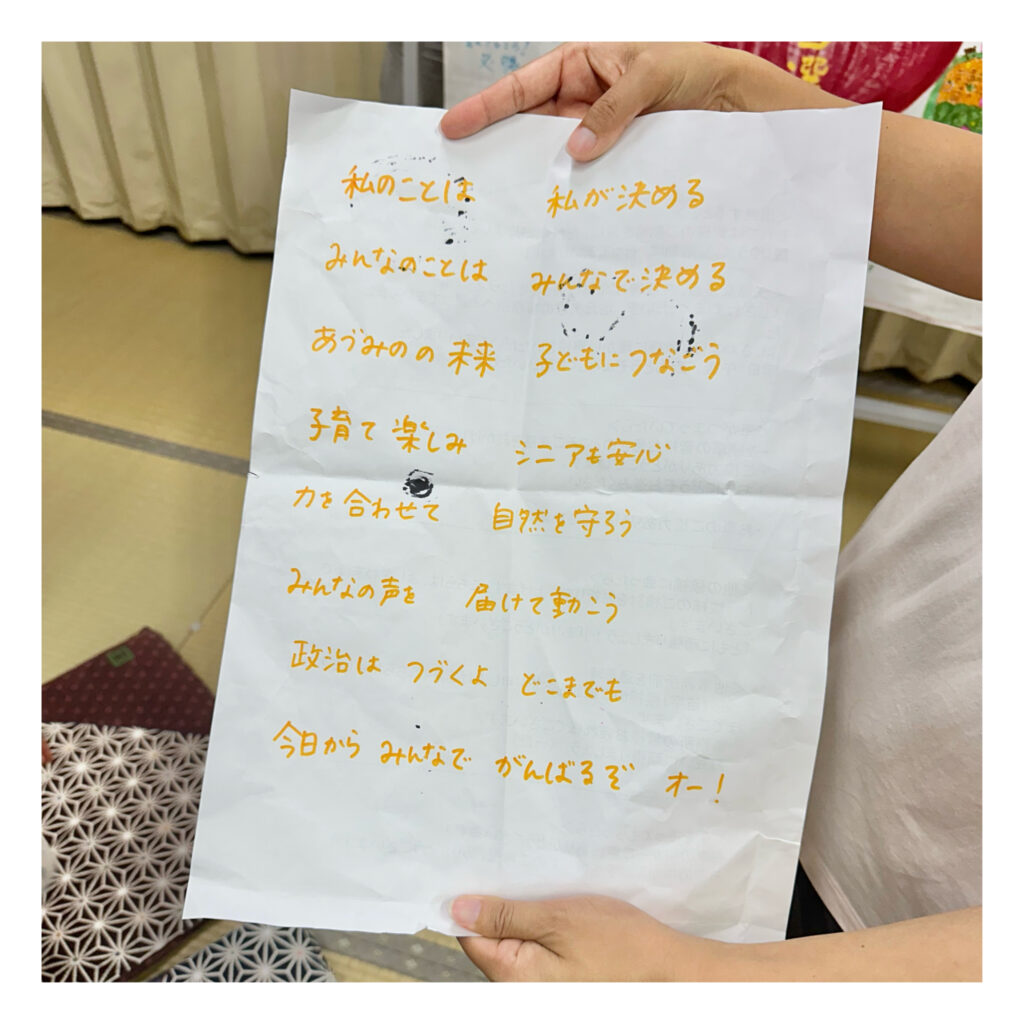 私のことは 私が決める
みんなのことは みんなで決める
あづみのの未来 子どもにつなごう
子育て楽しみ シニアも安心
力を合わせて 自然を守ろう
みんなの声を 届けて動こう
政治は つづくよ どこまでも
今日から みんなで がんばるぞ オー!